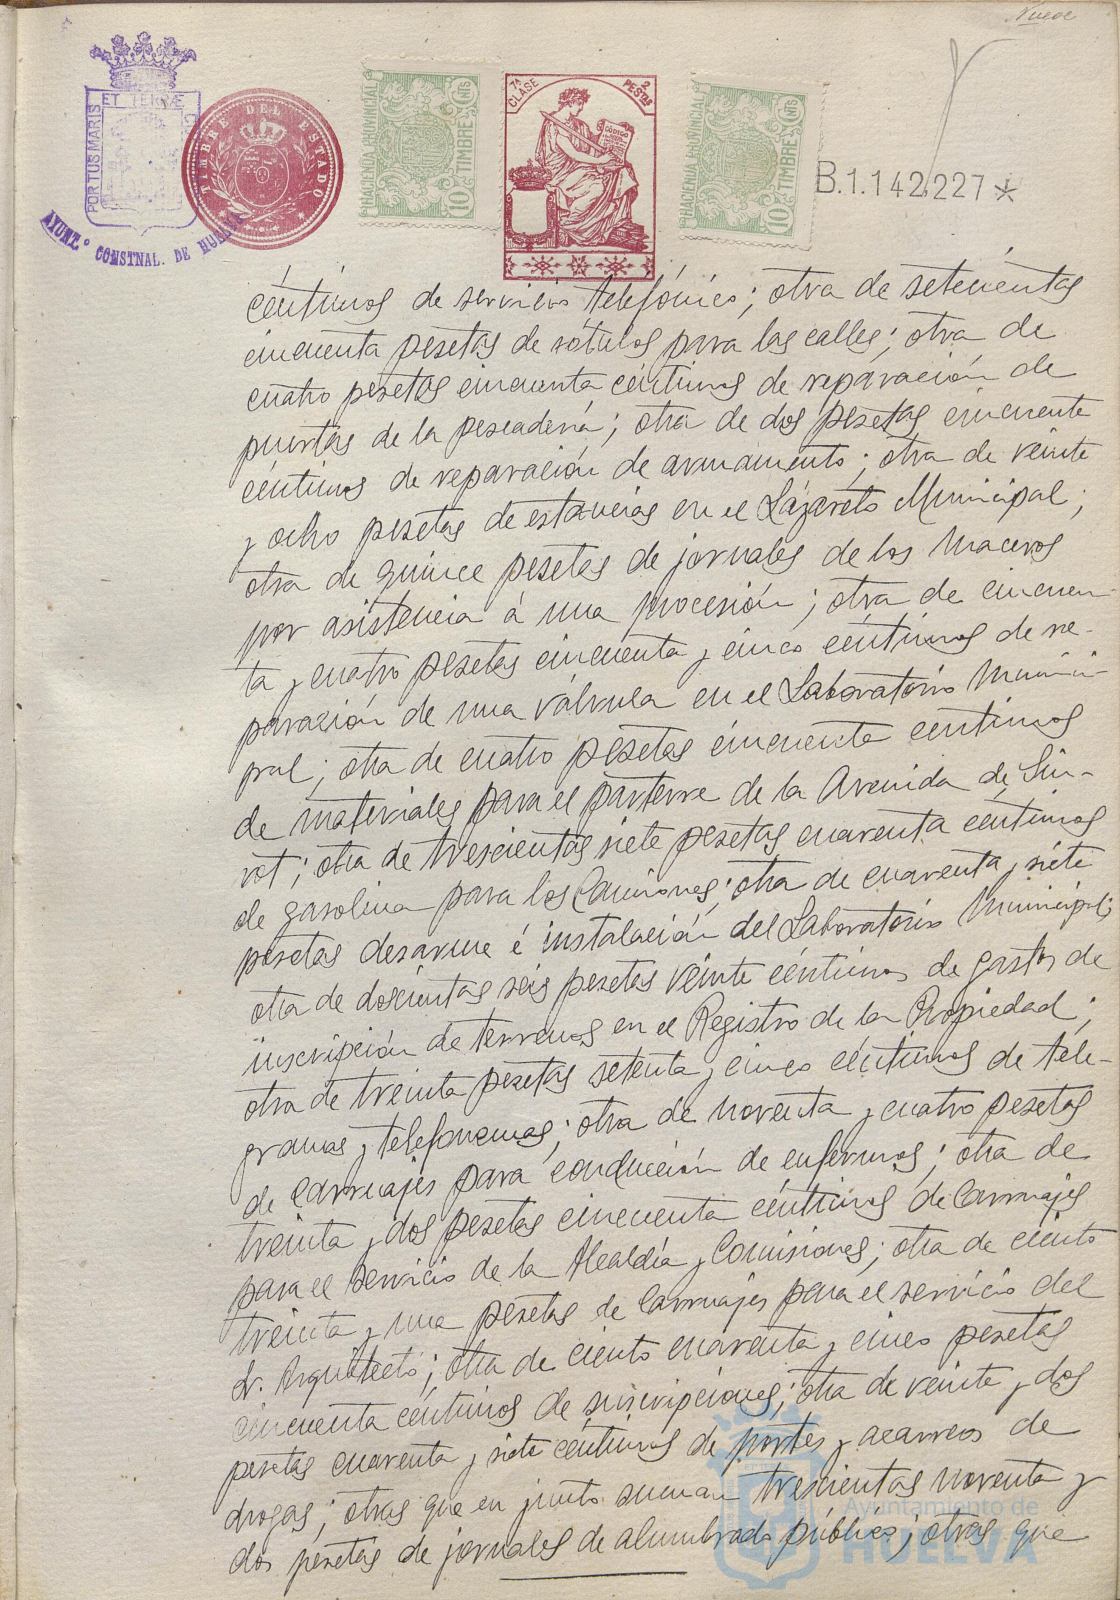 Nueve
ET TERRÆ
PORTUS MARIS
AYUNT.º CONSTNAL. DE HUELVA
TIMBRE DEL ESTADO
HACIENDA PROVINCIAL
TIMBRE
10 CTS
7ª CLASE
2 PESTAS
CÓDIGO
HACIENDA PROVINCIAL
TIMBRE
10 CTS
B.1.142,227 *
céntimos de servicio telefónico; otra de setecientas
cincuenta pesetas de rótulos para las calles; otra de
cuatro pesetas cincuenta céntimos de reparación de
puertas de la pescadería; otra de dos pesetas cincuenta
céntimos de reparación de armamento; otra de veinte
y ocho pesetas de estancias en el Lazareto Municipal;
otra de quince pesetas de jornales de los maceros
por asistencia á una procesión; otra de cincuen-
ta y cuatro pesetas cincuenta y cinco céntimos de re-
paración de una válvula en el Laboratorio Munici-
pal; otra de cuatro pesetas cincuenta centimos
de materiales para el parterre de la Avenida de Sun-
rot; otra de trescientas siete pesetas cuarenta céntimos
de gasolina para los Camiones; otra de cuarenta y siete
pesetas desarme é instalación del Laboratorio Municipal;
otra de doscientas seis pesetas veinte céntimos de gastos de
inscripción de terrenos en el Registro de la Propiedad;
otra de treinta pesetas setenta y cinco céntimos de tele-
gramas y telefonemas; otra de noventa y cuatro pesetas
de carruajes para conducción de enfermos; otra de
treinta y dos pesetas cincuenta céntimos de Carruajes
para el servicio de la Alcaldía y Comisiones; otra de ciento
treinta y una pesetas de Carruajes para el servicio del
Sr. Arquitecto; otra de ciento cuarenta y cinco pesetas
cincuenta céntimos de suscripciones; otra de veinte y dos
pesetas cuarenta y siete céntimos de portes y acarreos de
drogas; otras que en junto suman trescientas noventa y
dos pesetas de jornales de alumbrado público; otras que
Ayuntamiento de
HUELVA